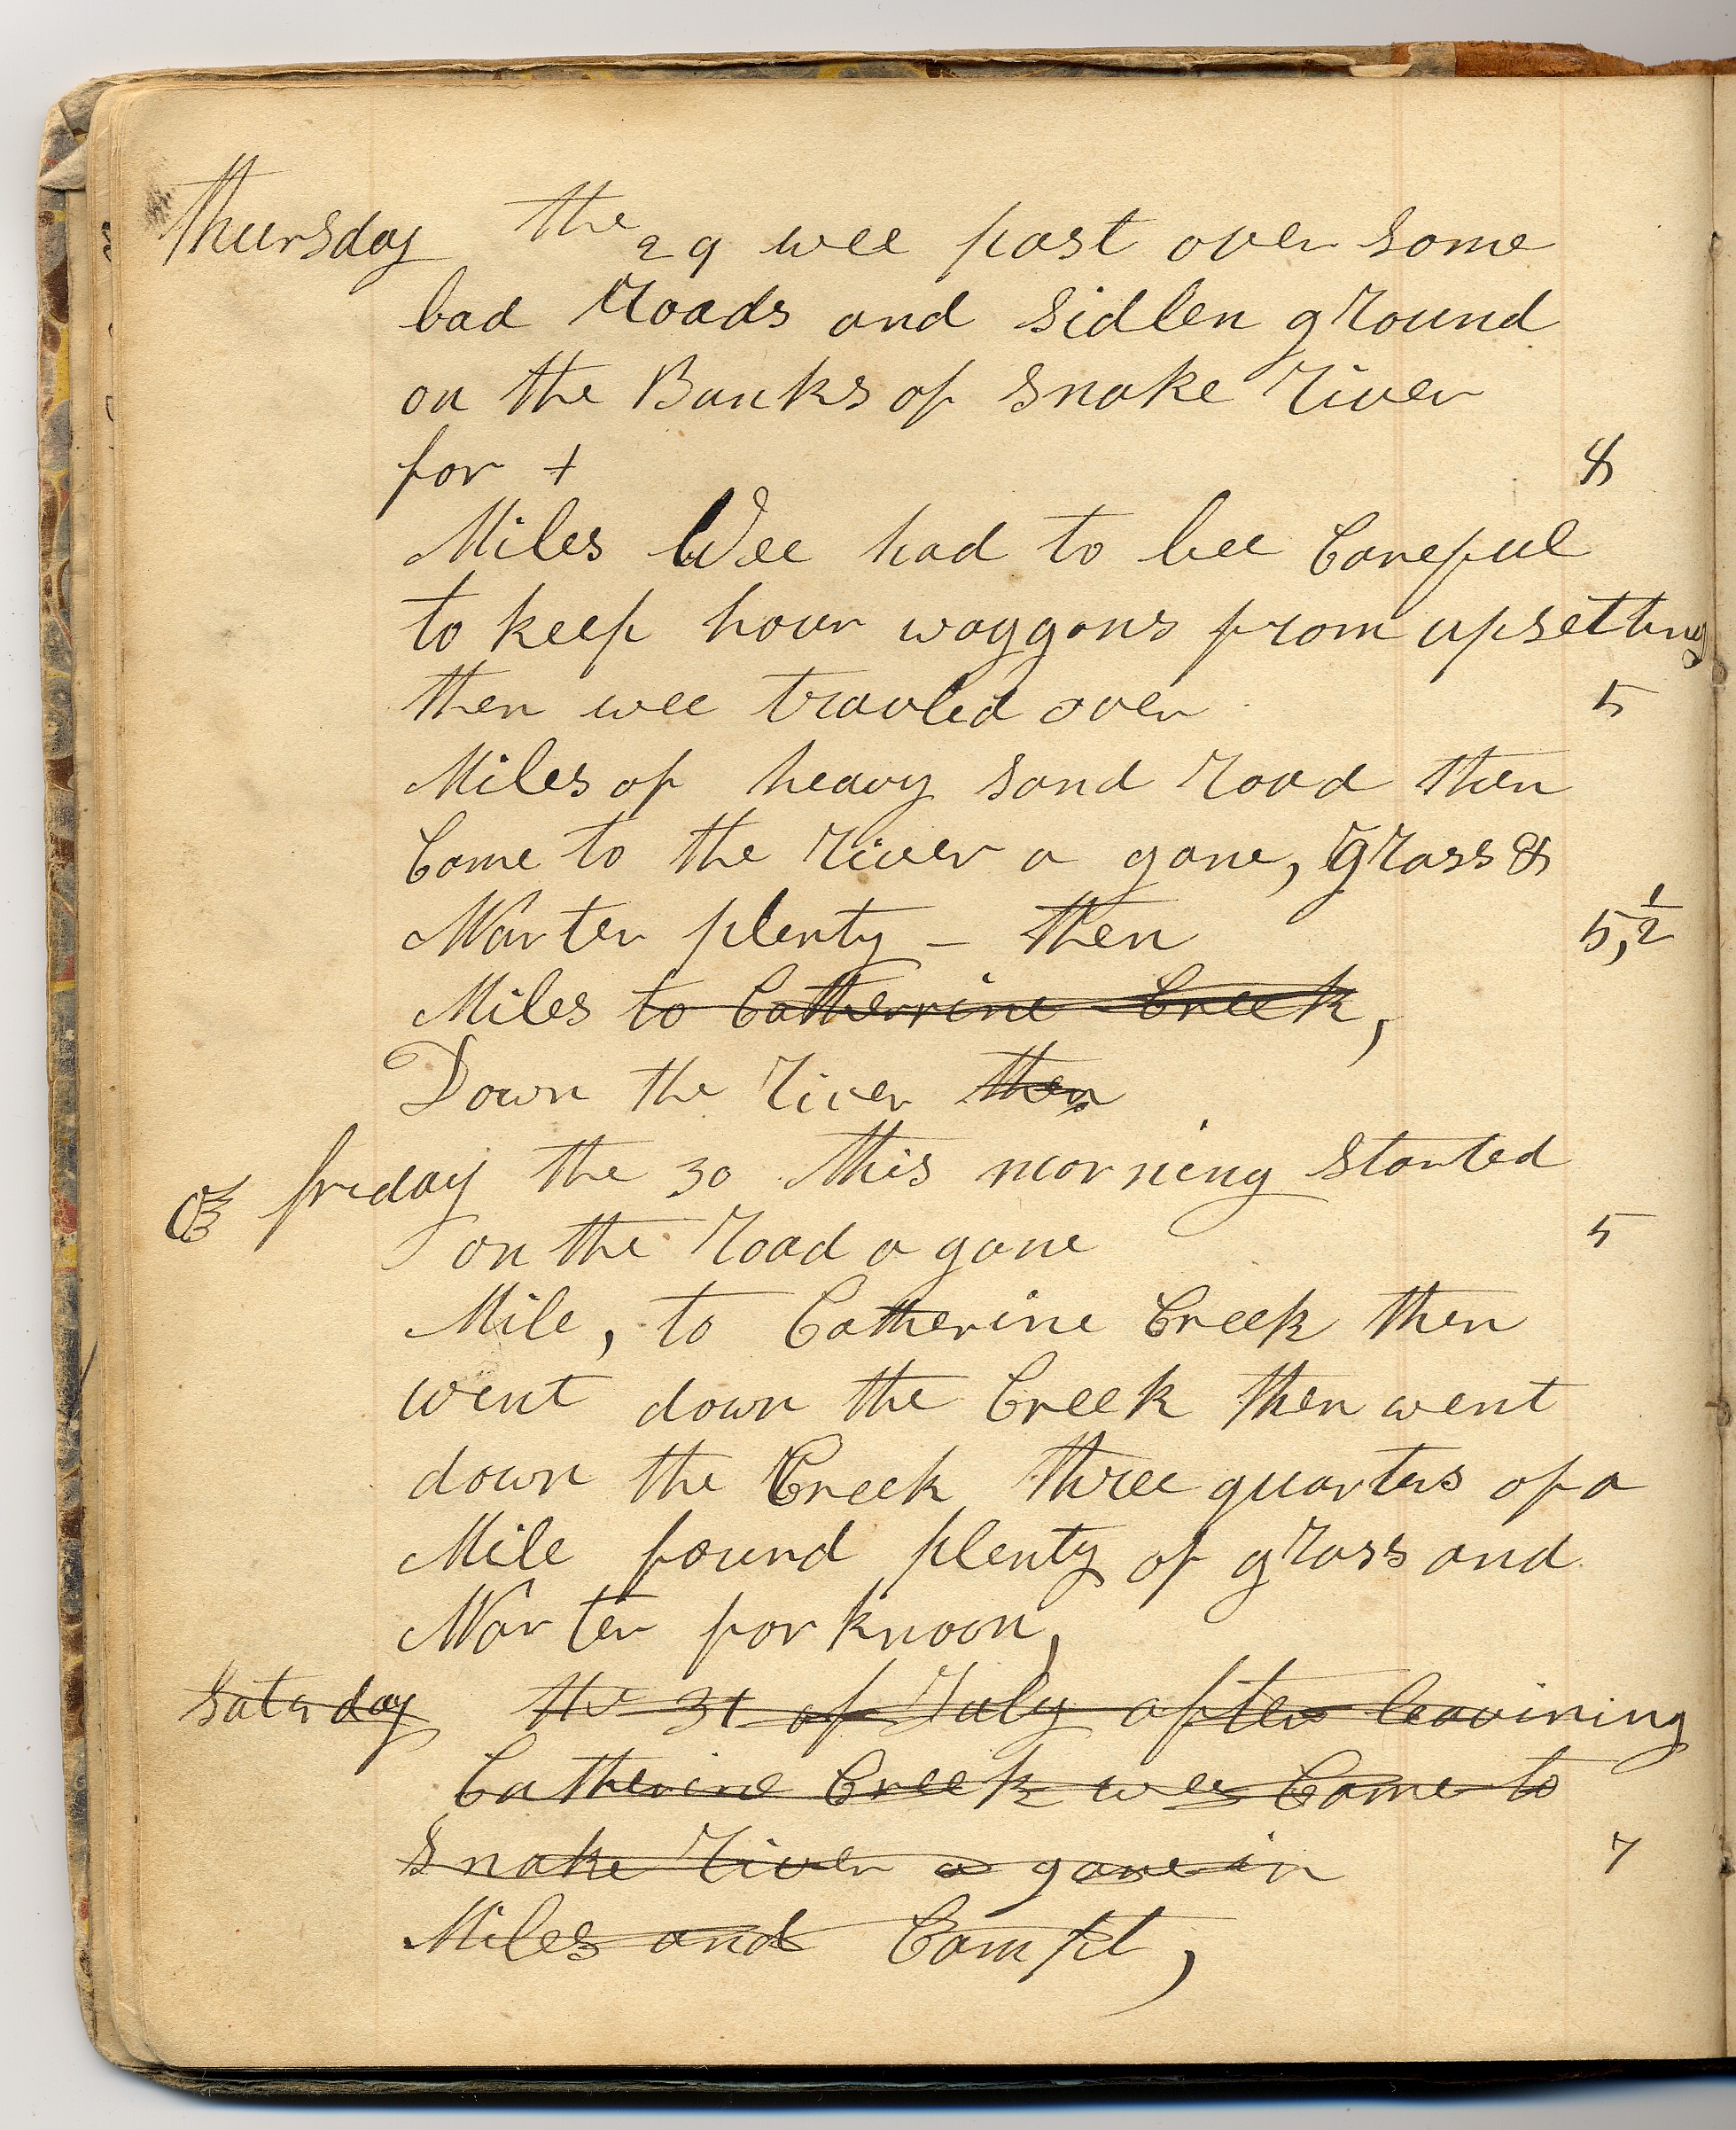 Thursday the 29 wee past over some
bad Roads and Sidlen ground
on the Banks of Snake River
for + 8
Miles Wee had to bee Careful
to keep hour waggons from upsetting
then wee travled over 5
Miles of heavy sand Road then
Come to the River a gane, grass &
Warter plenty - then 5,1/2
Miles to Catherrine Creek,
Down the River then
friday the 30 this morning started
on the Road a gane 5
Mile, to Catherine Creek then
went down the Creek then went
down the Creek three quarters of a
Mile found plenty of grass and
Warter for knoon,
Saturday the 31 of July after leavining
Catherine Creek wee Came to
Snake River a gane in 7
Miles and Campt,